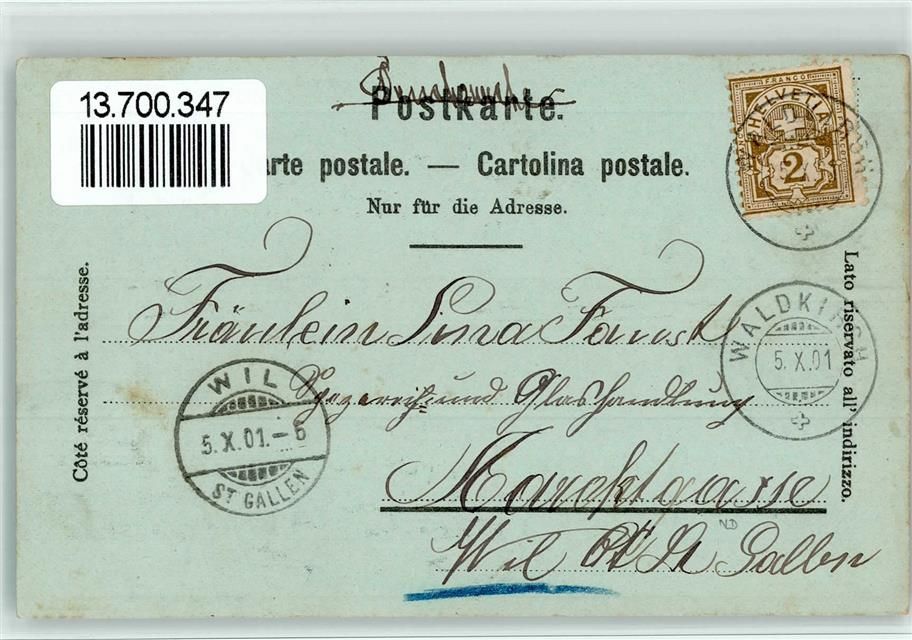 13.700.347
Postkarte.
arte postale. — Cartolina postale.
Nur für die Adresse.
FRANCO
HELVETIA
2
Côté réservé à l'adresse.
Lato riservato all' indirizzo.
Fräulein Lina Faust
und Glashandlung
Marktgasse
Wil Ct. St Gallen
WALDKIRCH
5.X.01
WIL
5.X.01.–6
ST GALLEN